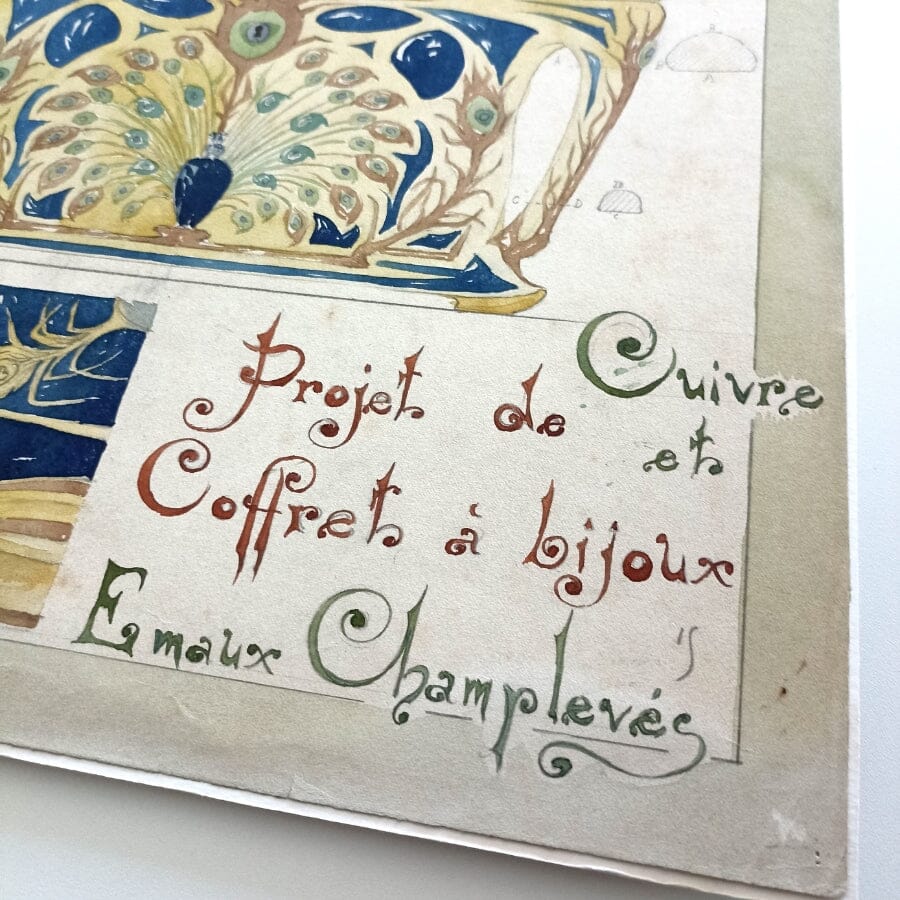 Projet de Cuivre
et
Coffret à bijoux
Emaux Champlevés